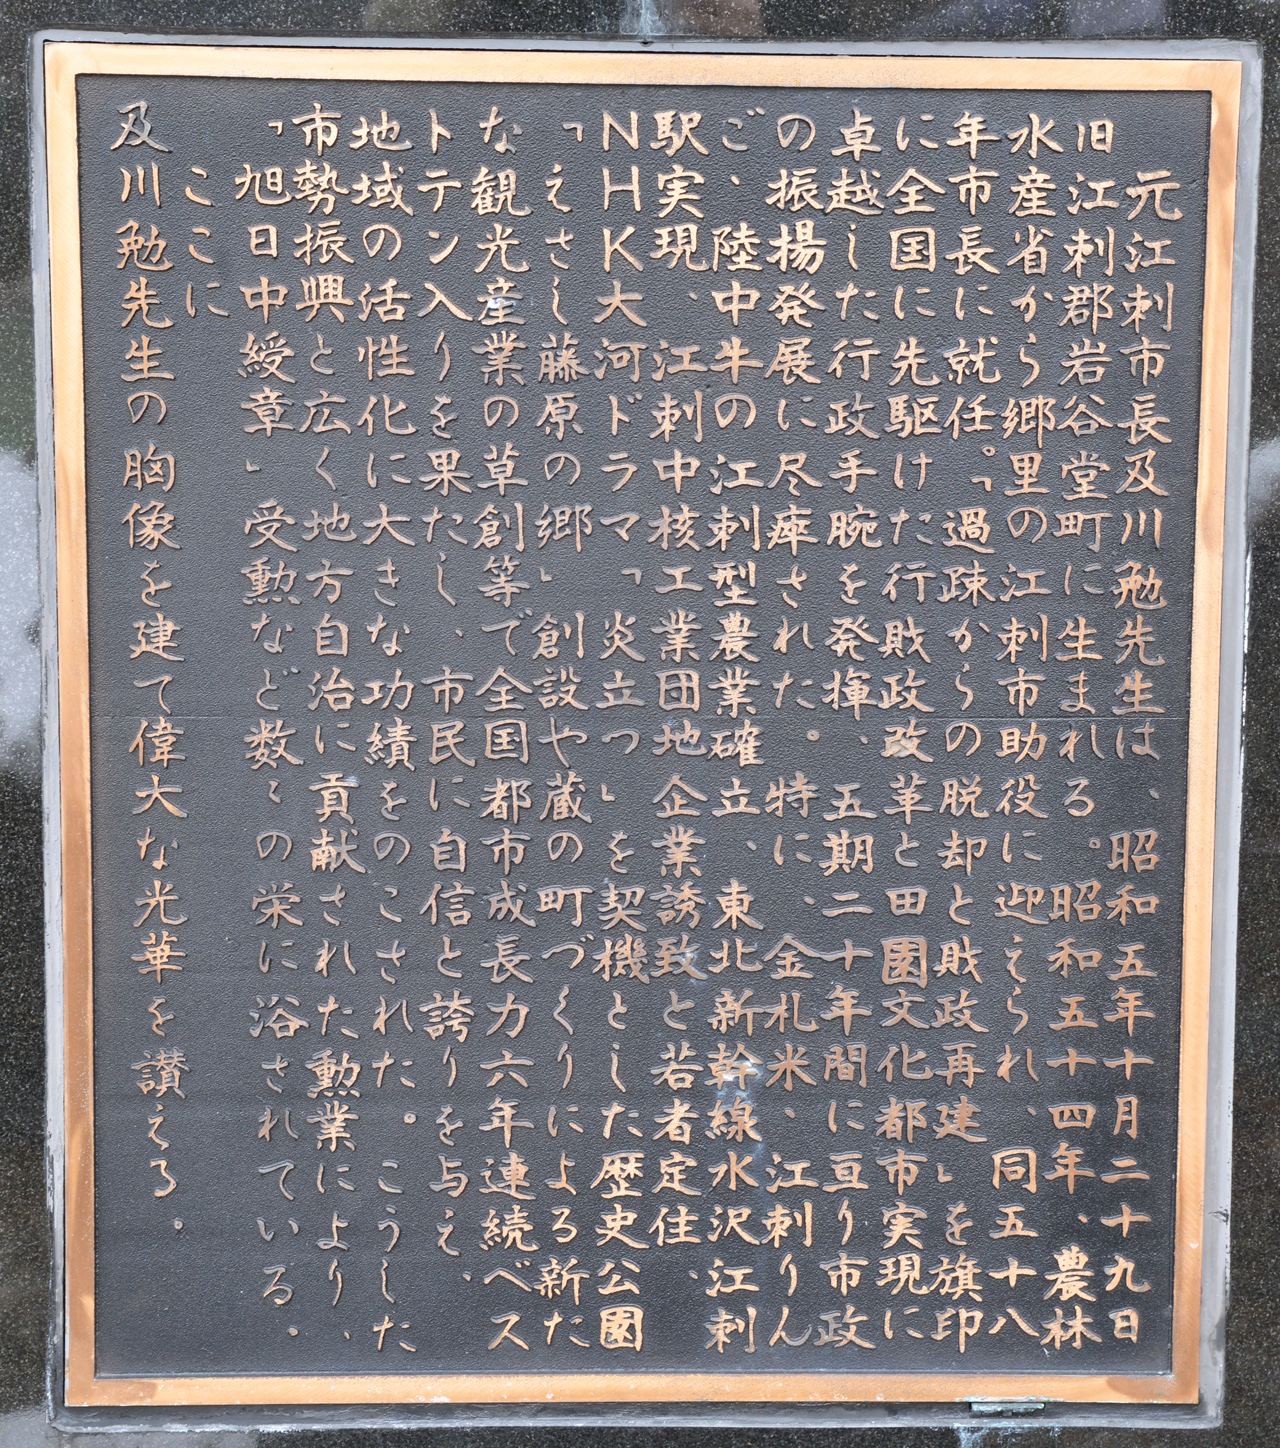 元江刺市長及川勉先生は、昭和五年十月二十九日
旧江刺郡岩谷堂町に生まれる。昭和五十四年、農林
水産省から郷里の江刺市助役に迎えられ、同五十八
年市長に就任。「過疎からの脱却と財政再建」を旗印
に全国に先駆けた行財政改革と田園文化都市実現に
卓越した行政手腕を発揮、五期二十年間に亘り市政
の振揚発展に尽瘁された。特に、金札米、江刺りん
ご、陸中牛の江刺型農業確立、東北新幹線水沢江刺
駅実現、江刺中核工業団地企業誘致と若者定住、
NHK大河ドラマ「炎立つ」を契機とした歴史公園
「えさし藤原の郷」創設や蔵の町づくりによる新た
な観光産業の草創等で全国都市成長力六年連続ベス
トテン入りを果たし、市民に自信と誇りを与え、
地域の活性化に大きな功績をのこされた。こうした
市勢振興と広く地方自治に貢献された勲業により、
「旭日中綬章」受勲など数々の栄に浴されている。
ここに
及川勉先生の胸像を建て偉大な光華を讃える。